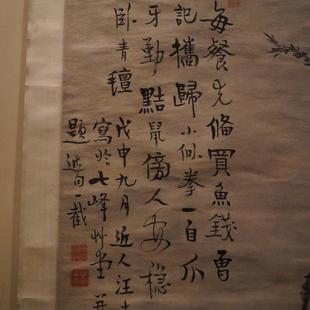 每餐先備買魚錢曾
記攜歸小似拳一自爪
牙勤點鼠傍人安穩
臥青氊
戊申九月近人汪士
寫於七峰艸堂并
題 一截